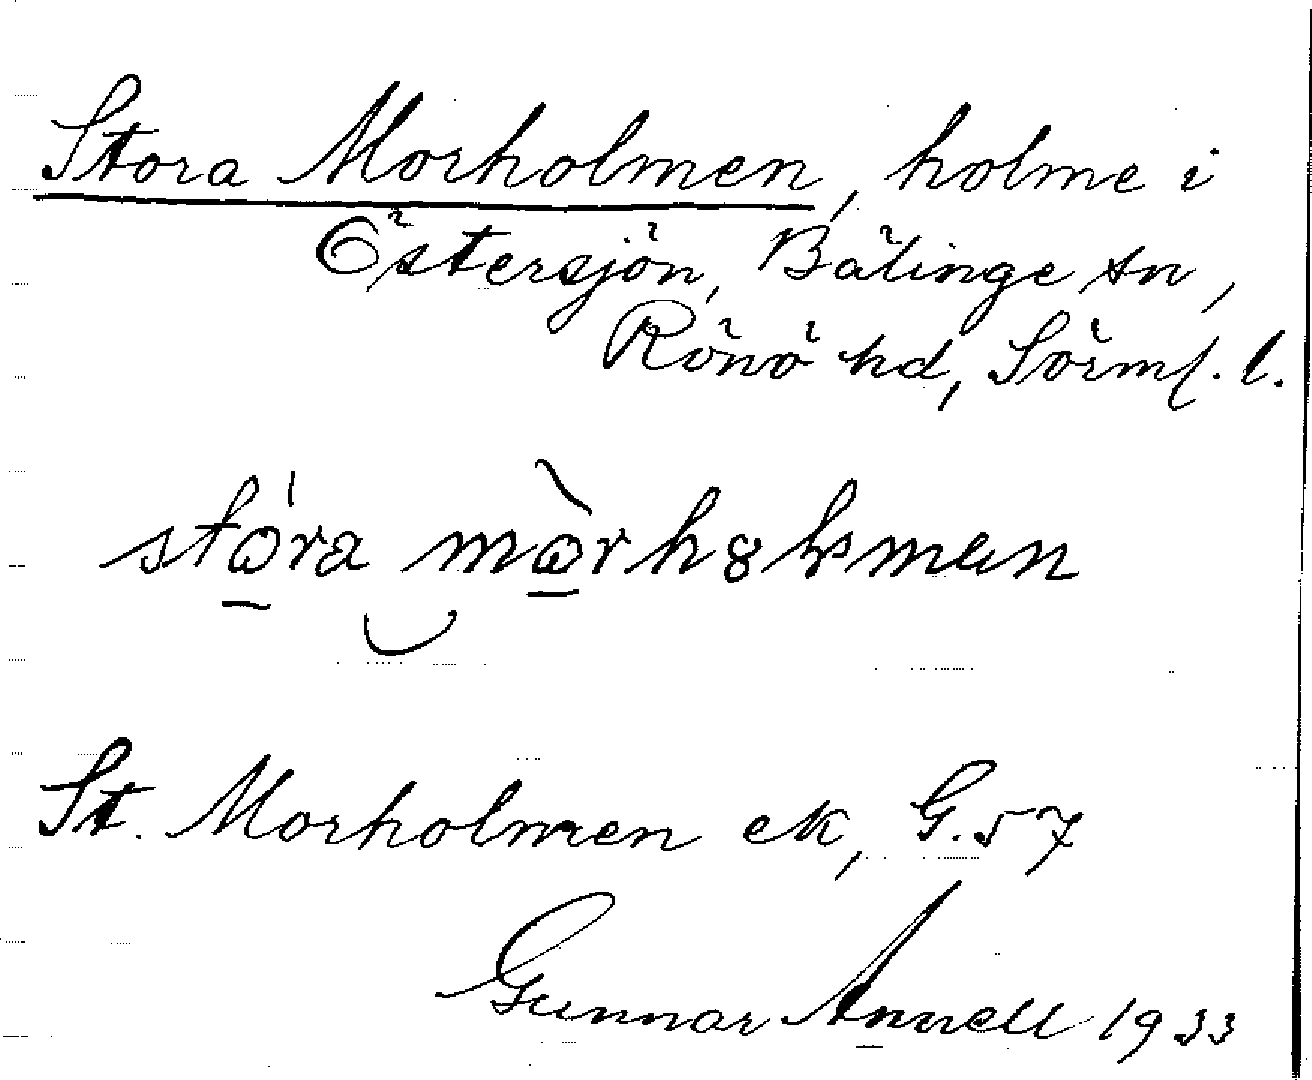 Stora Morholmen, holme i
Östersjön, Bälinge sn,
Rönö hd, Sörml. l.
stóra mòrh8lman
St. Morholmen ek, G.57
Gunnar Annell 1933